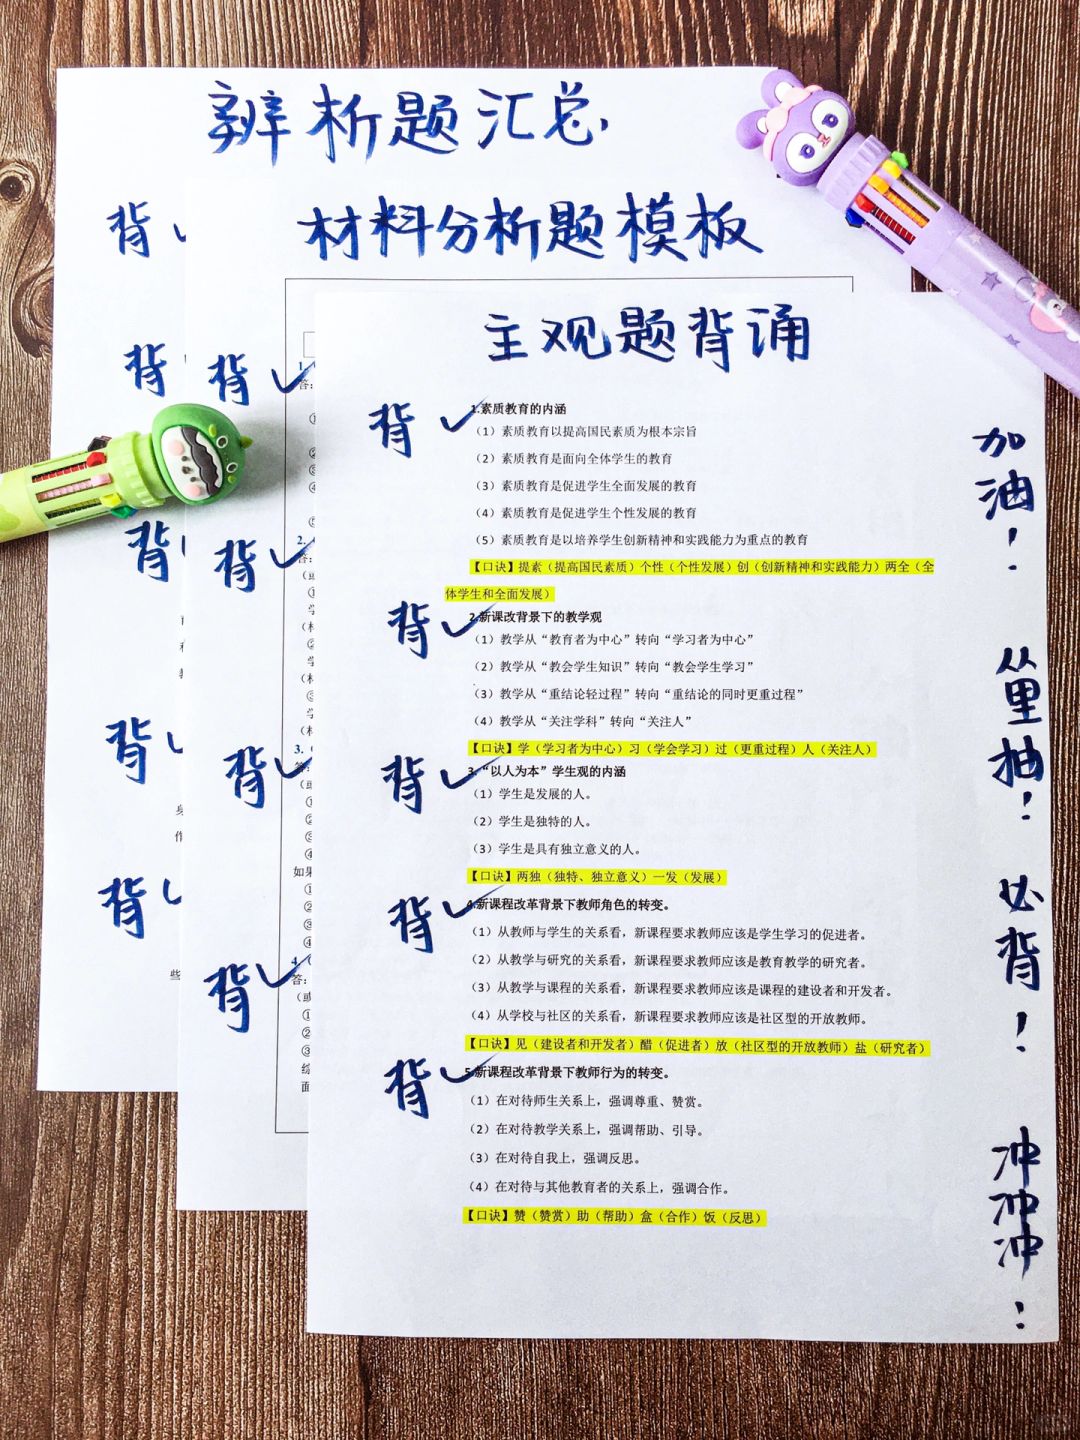 辨析题汇总
背
背
背
背
背
材料分析题模板
背
背
背
背
1.
答：
2.
答：
3.
答：
如果
4.
答：
主观题背诵
背
1.素质教育的内涵
（1）素质教育以提高国民素质为根本宗旨
（2）素质教育是面向全体学生的教育
（3）素质教育是促进学生全面发展的教育
（4）素质教育是促进学生个性发展的教育
（5）素质教育是以培养学生创新精神和实践能力为重点的教育
【口诀】提素（提高国民素质）个性（个性发展）创（创新精神和实践能力）两全（全
体学生和全面发展）
背
2.新课改背景下的教学观
（1）教学从“教育者为中心”转向“学习者为中心”
（2）教学从“教会学生知识”转向“教会学生学习”
（3）教学从“重结论轻过程”转向“重结论的同时更重过程”
（4）教学从“关注学科”转向“关注人”
【口诀】学（学习者为中心）习（学会学习）过（更重过程）人（关注人）
背
3.“以人为本”学生观的内涵
（1）学生是发展的人。
（2）学生是独特的人。
（3）学生是具有独立意义的人。
【口诀】两独（独特、独立意义）一发（发展）
背
4.新课程改革背景下教师角色的转变。
（1）从教师与学生的关系看，新课程要求教师应该是学生学习的促进者。
（2）从教学与研究的关系看，新课程要求教师应该是教育教学的研究者。
（3）从教学与课程的关系看，新课程要求教师应该是课程的建设者和开发者。
（4）从学校与社区的关系看，新课程要求教师应该是社区型的开放教师。
【口诀】见（建设者和开发者）醋（促进者）放（社区型的开放教师）盐（研究者）
背
5.新课程改革背景下教师行为的转变。
（1）在对待师生关系上，强调尊重、赞赏。
（2）在对待教学关系上，强调帮助、引导。
（3）在对待自我上，强调反思。
（4）在对待与其他教育者的关系上，强调合作。
【口诀】赞（赞赏）助（帮助）盒（合作）饭（反思）
加油！
从里抽！
必背！
冲冲冲！